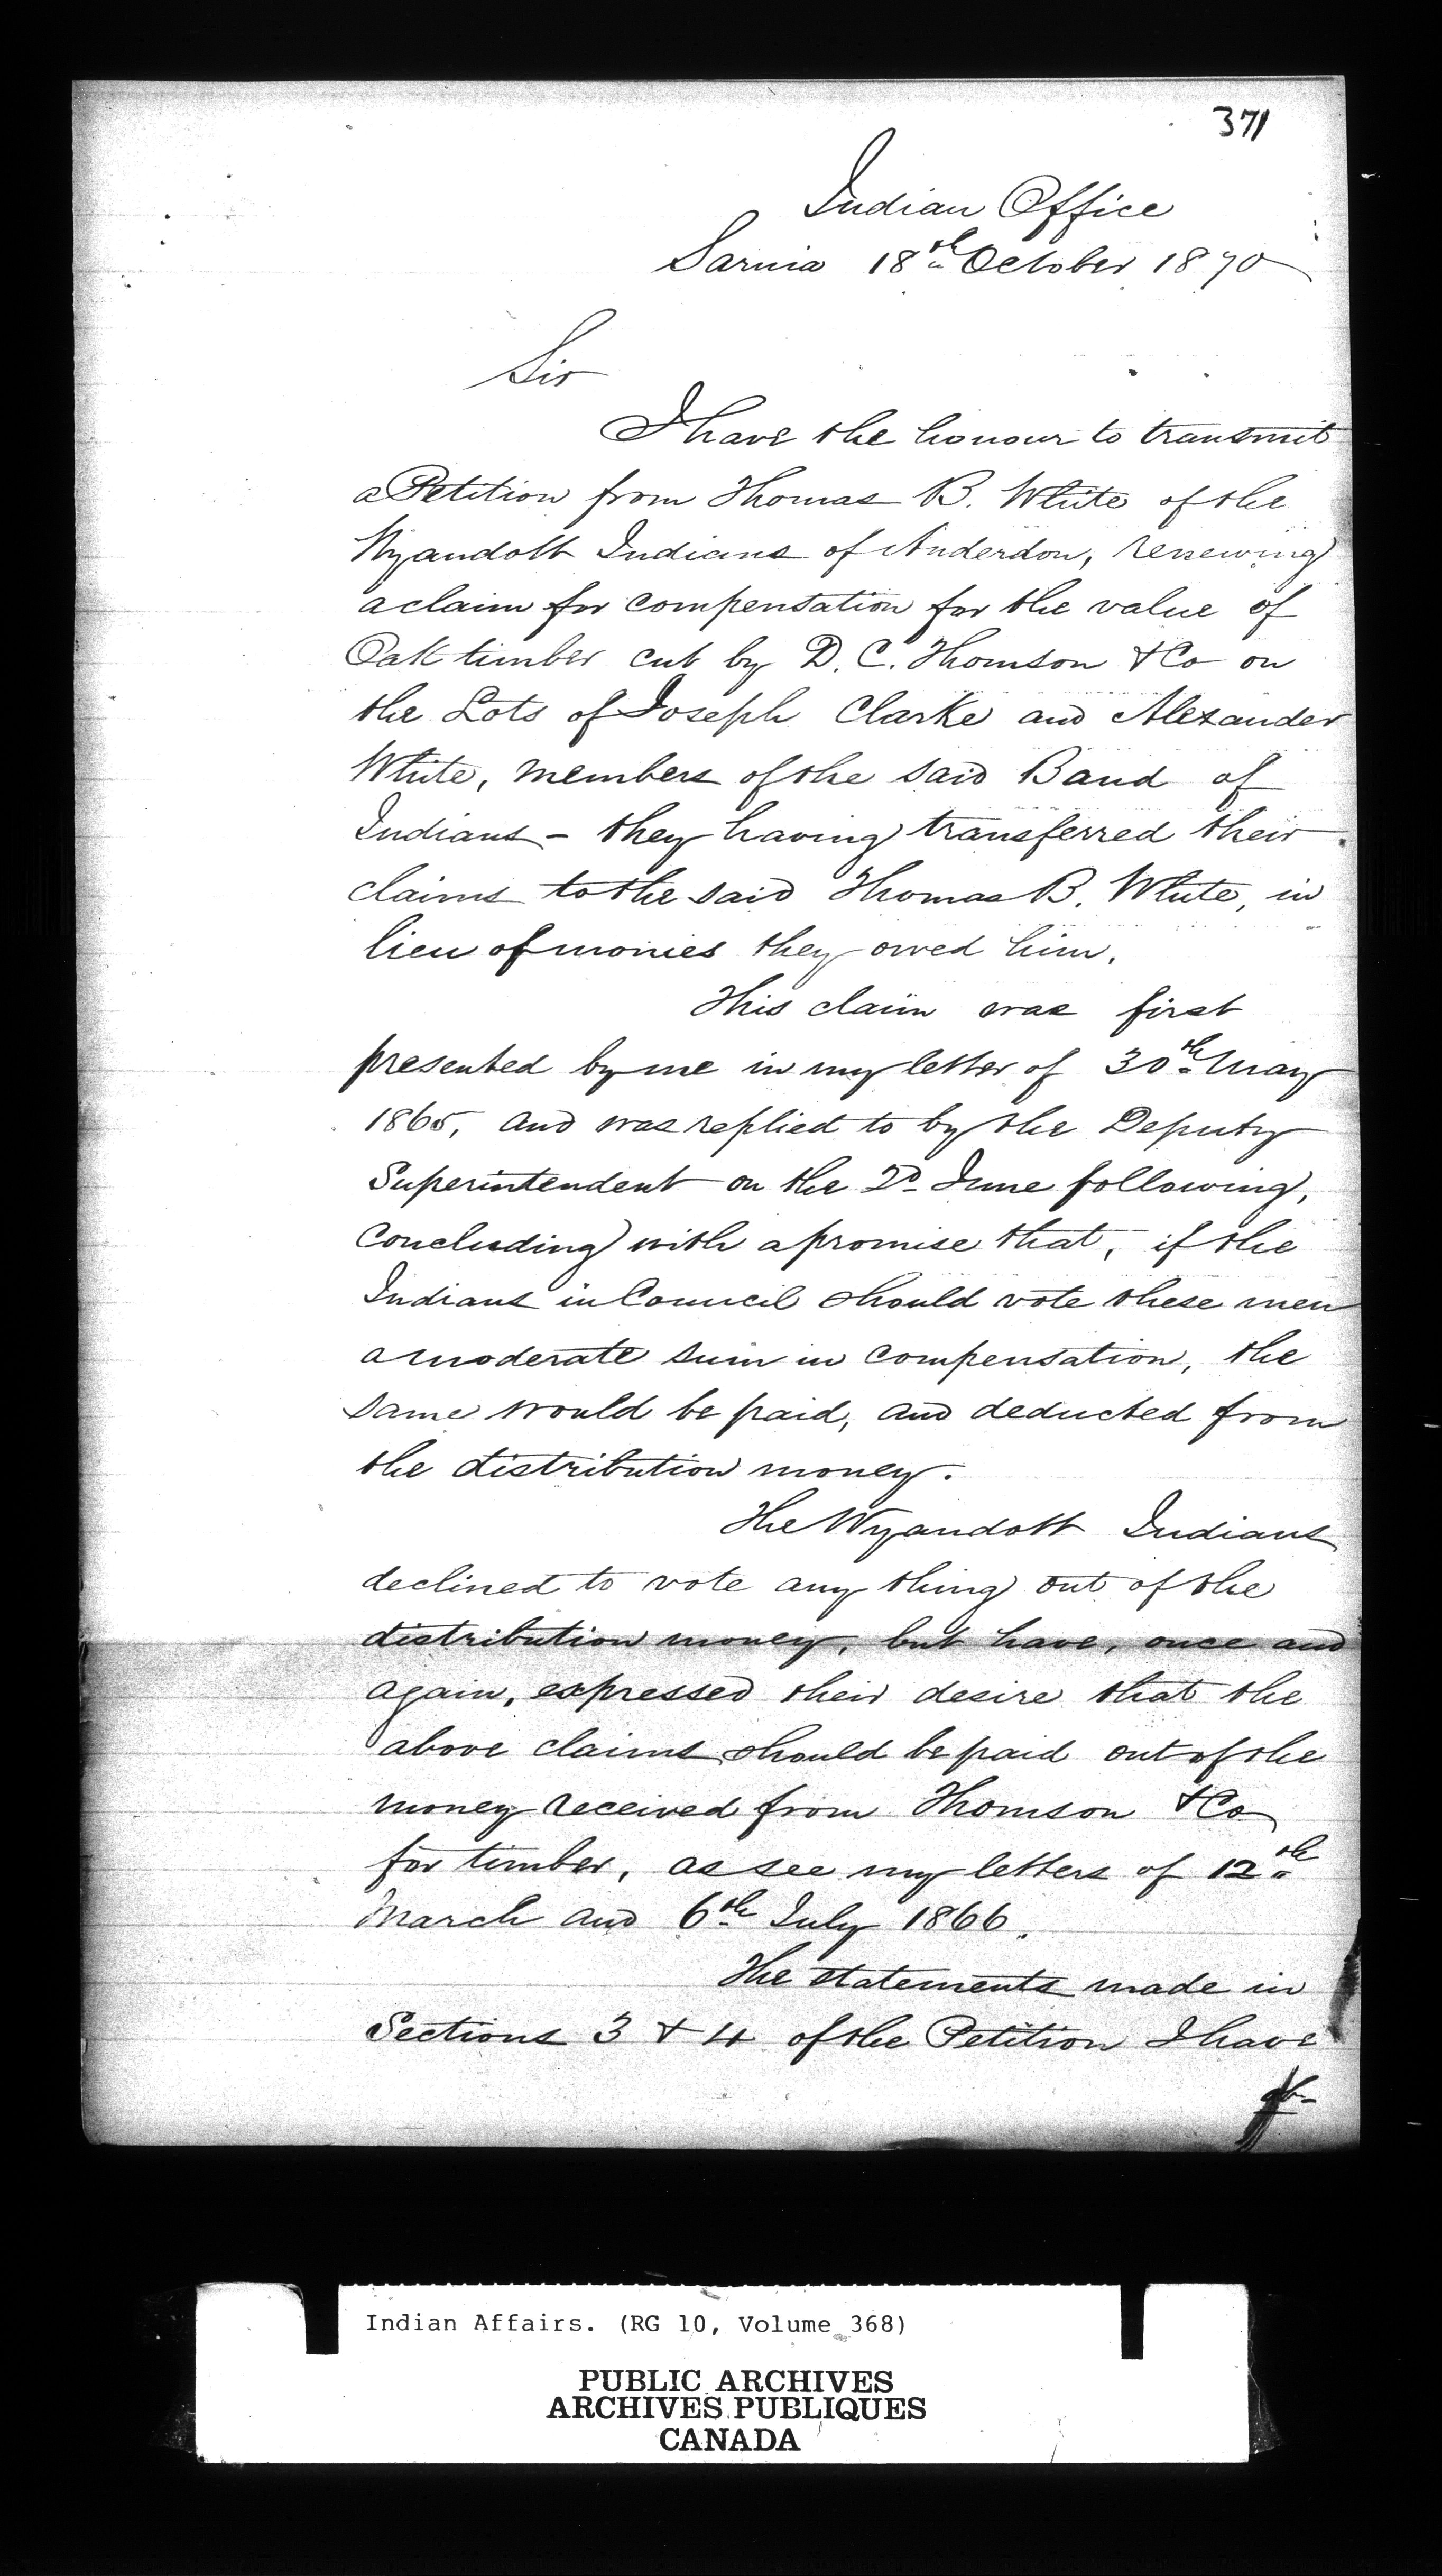 371
Indian Office
Sarnia 18th October 1870
Sir
I have the honour to transmit
a Petition from Thomas B. White of the
Wyandott Indians of Anderdon, renewing
a claim for compensation for the value of
Oak timber cut by D. C. Thomson & Co on
the Lots of Joseph Clarke and Alexander
White, members of the said Band of
Indians - they having transferred their
claims to the said Thomas B. White, in
lieu of monies they owed him.
This claim was first
presented by me in my letter of 30th May
1865, and was replied to by the Deputy
Superintendent on the 2d June following,
concluding with a promise that, if the
Indians in Council should vote these men
a moderate sum in compensation, the
same would be paid, and deducted from
the distribution money.
The Wyandott Indians
declined to vote any thing out of the
distribution money, but have, once and
again, expressed their desire that the
above claims should be paid out of the
money received from Thomson & Co
for timber, as see my letters of 12th
March and 6th July 1866.
The statements made in
Sections 3 & 4 of the Petition I have
Indian Affairs. (RG 10, Volume 368)
PUBLIC ARCHIVES
ARCHIVES PUBLIQUES
CANADA